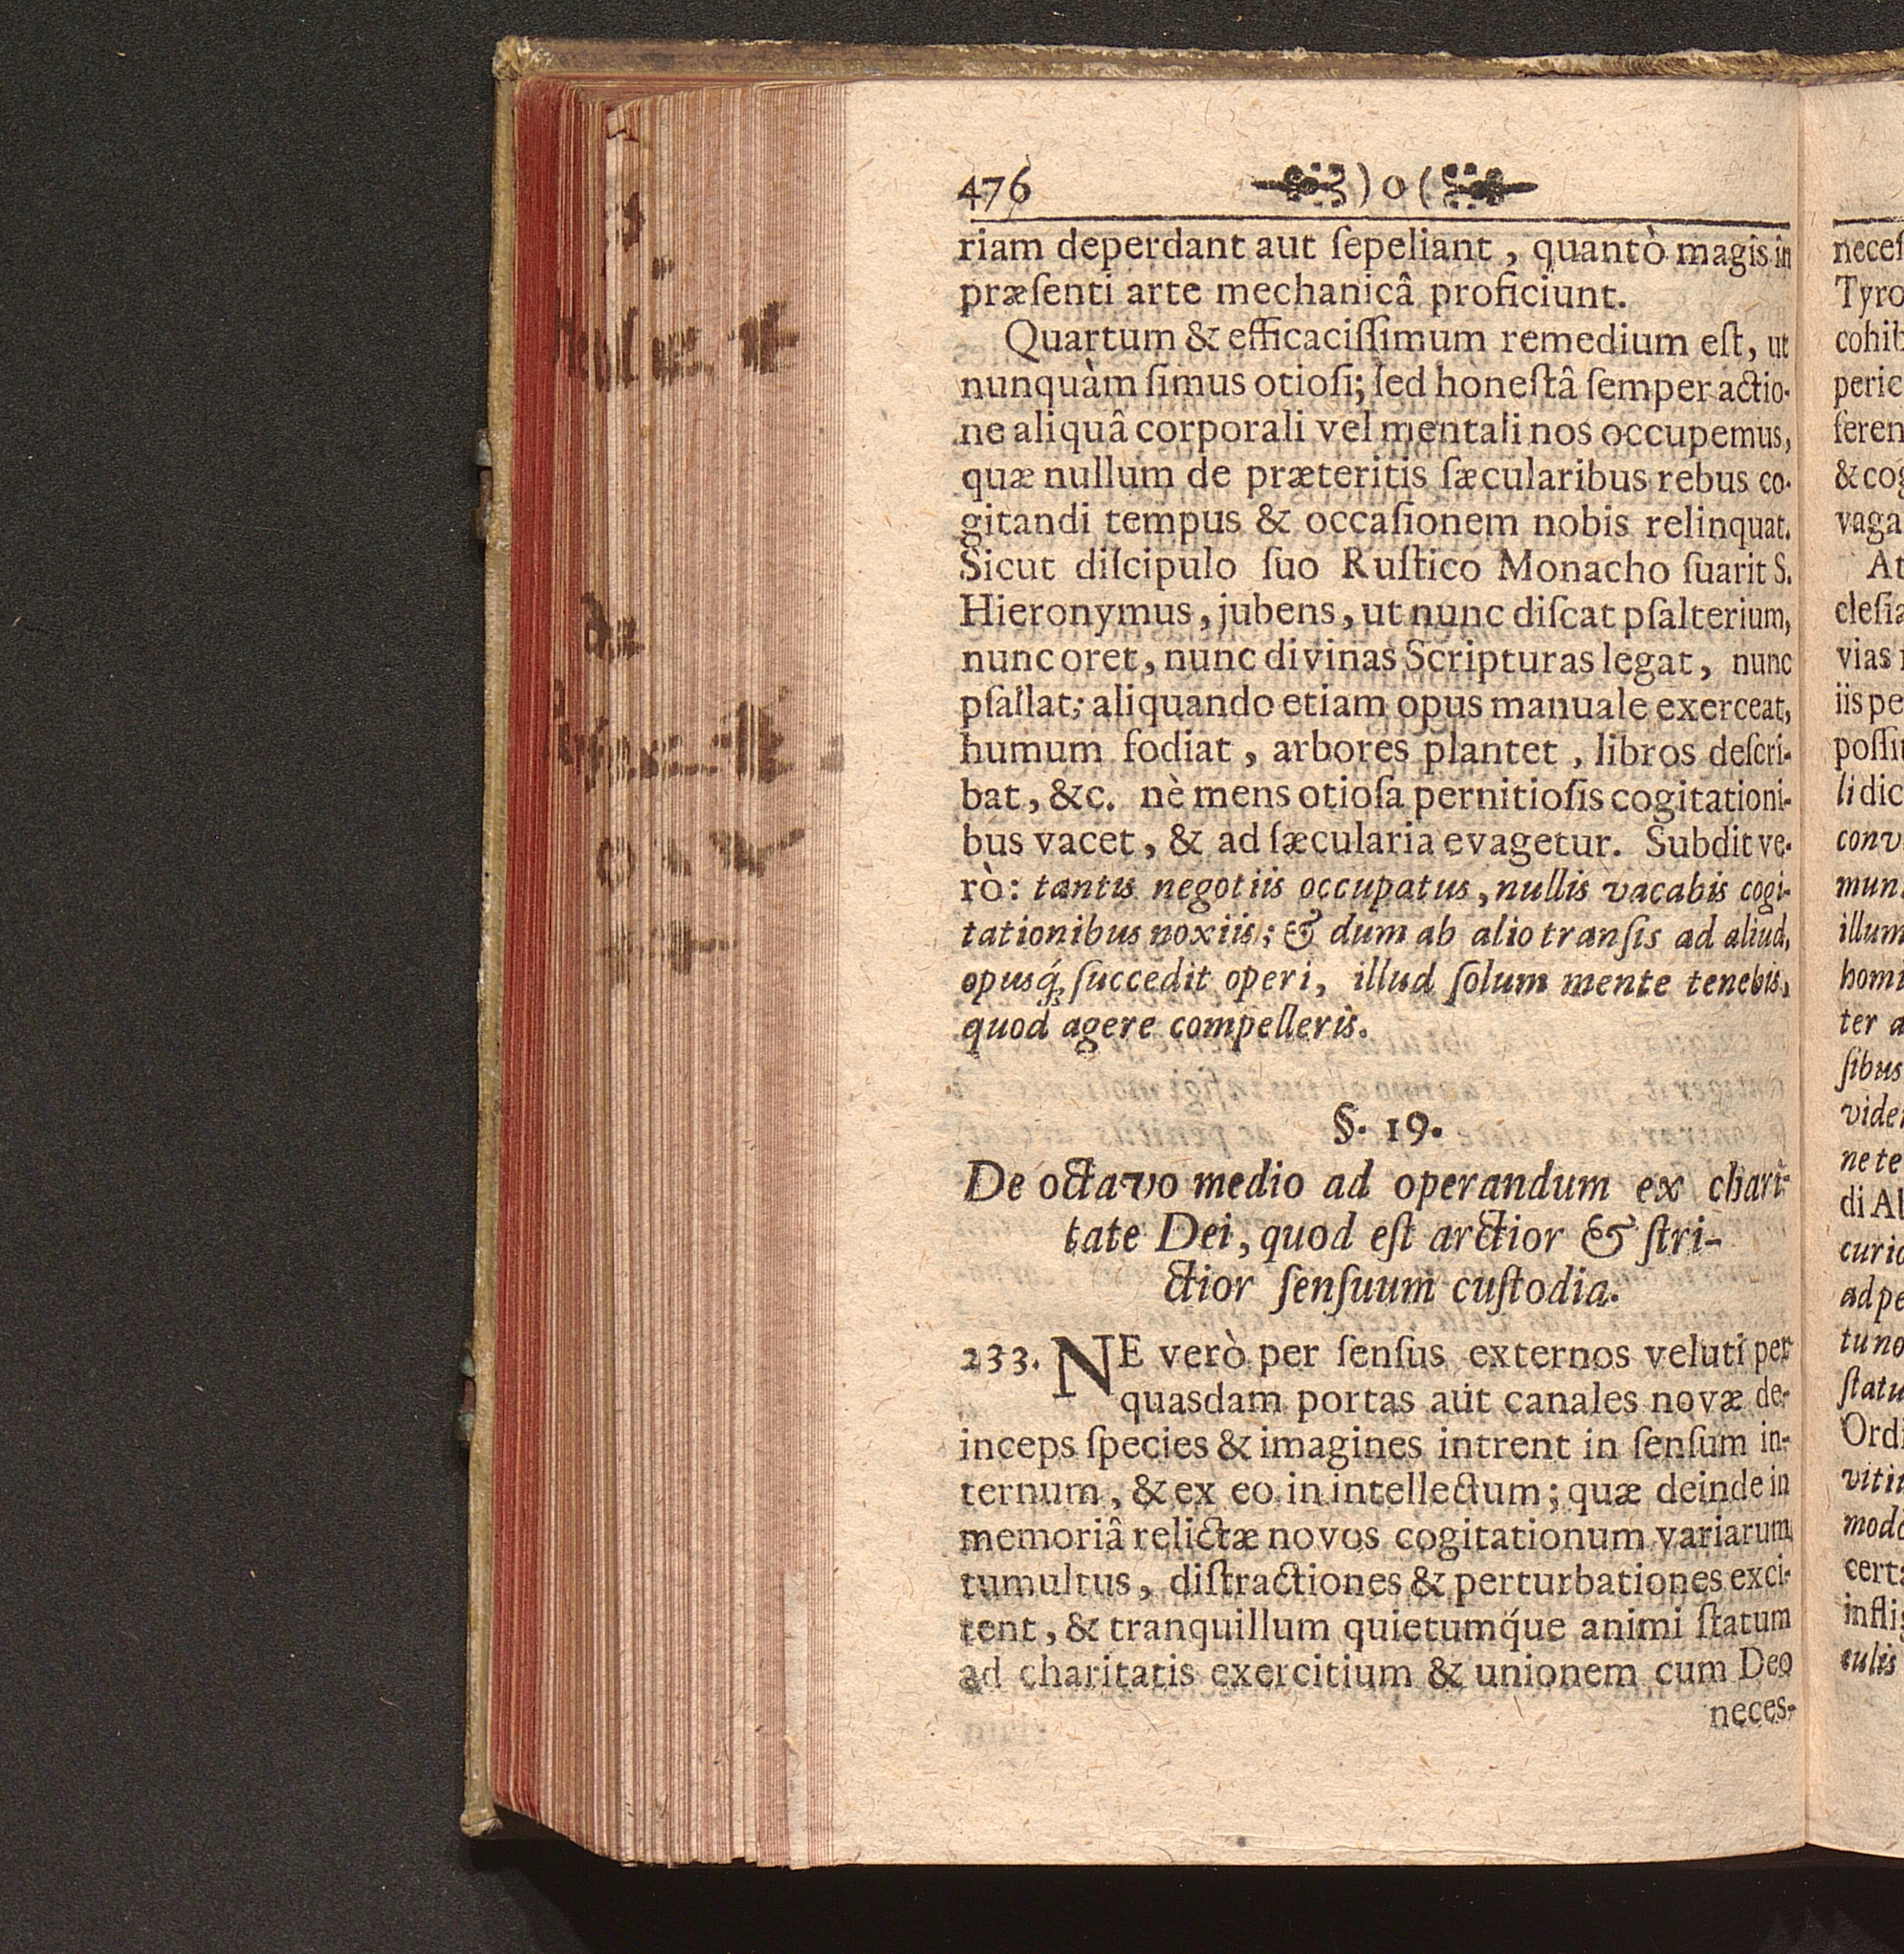 476 )o(
riam deperdant aut ſepeliant, quantò magis in
præſenti arte mechanicâ proficiunt.
Quartum & efficaciſſimum remedium eſt, ut
nunquàm ſimus otioſi; ſed honeſtâ ſemper actio-
ne aliquâ corporali vel mentali nos occupemus,
quæ nullum de præteritis ſæcularibus rebus co-
gitandi tempus & occaſionem nobis relinquat.
Sicut diſcipulo ſuo Ruſtico Monacho ſuarit S.
Hieronymus, jubens, ut nunc diſcat pſalterium,
nunc oret, nunc divinas Scripturas legat, nunc
pſallat; aliquando etiam opus manuale exerceat,
humum fodiat, arbores plantet, libros deſcri-
bat, &c. nè mens otioſa pernitioſis cogitationi-
bus vacet, & ad ſæcularia evagetur. Subdit ve-
rò: tantis negotiis occupatus, nullis vacabis cogi-
tationibus noxiis; & dum ab alio tranſis ad aliud,
opusq́; ſuccedit operi, illud ſolum mente tenebis,
quod agere compelleris.
§. 19.
De octavo medio ad operandum ex chari-
tate Dei, quod eſt arctior & ſtri-
ctior ſenſuum cuſtodia.
233. NE verò per ſenſus externos veluti per
quasdam portas aut canales novæ de-
inceps ſpecies & imagines intrent in ſenſum in-
ternum, & ex eo in intellectum; quæ deinde in
memoriâ relictæ novos cogitationum variarum
tumultus, diſtractiones & perturbationes exci-
tent, & tranquillum quietumq́ue animi ſtatum
ad charitatis exercitium & unionem cum Deo
neces-
neceſ
Tyro
cohib
peric
feren
& cog
vaga
At
cleſia
vias
iis pe
poſſit
li dic
conv
mun
illum
homi
ter a
ſibus
vide
ne te
di Al
curio
ad pe
tu no
ſtatu
Ordi
vitiu
modo
certa
inflig
culis